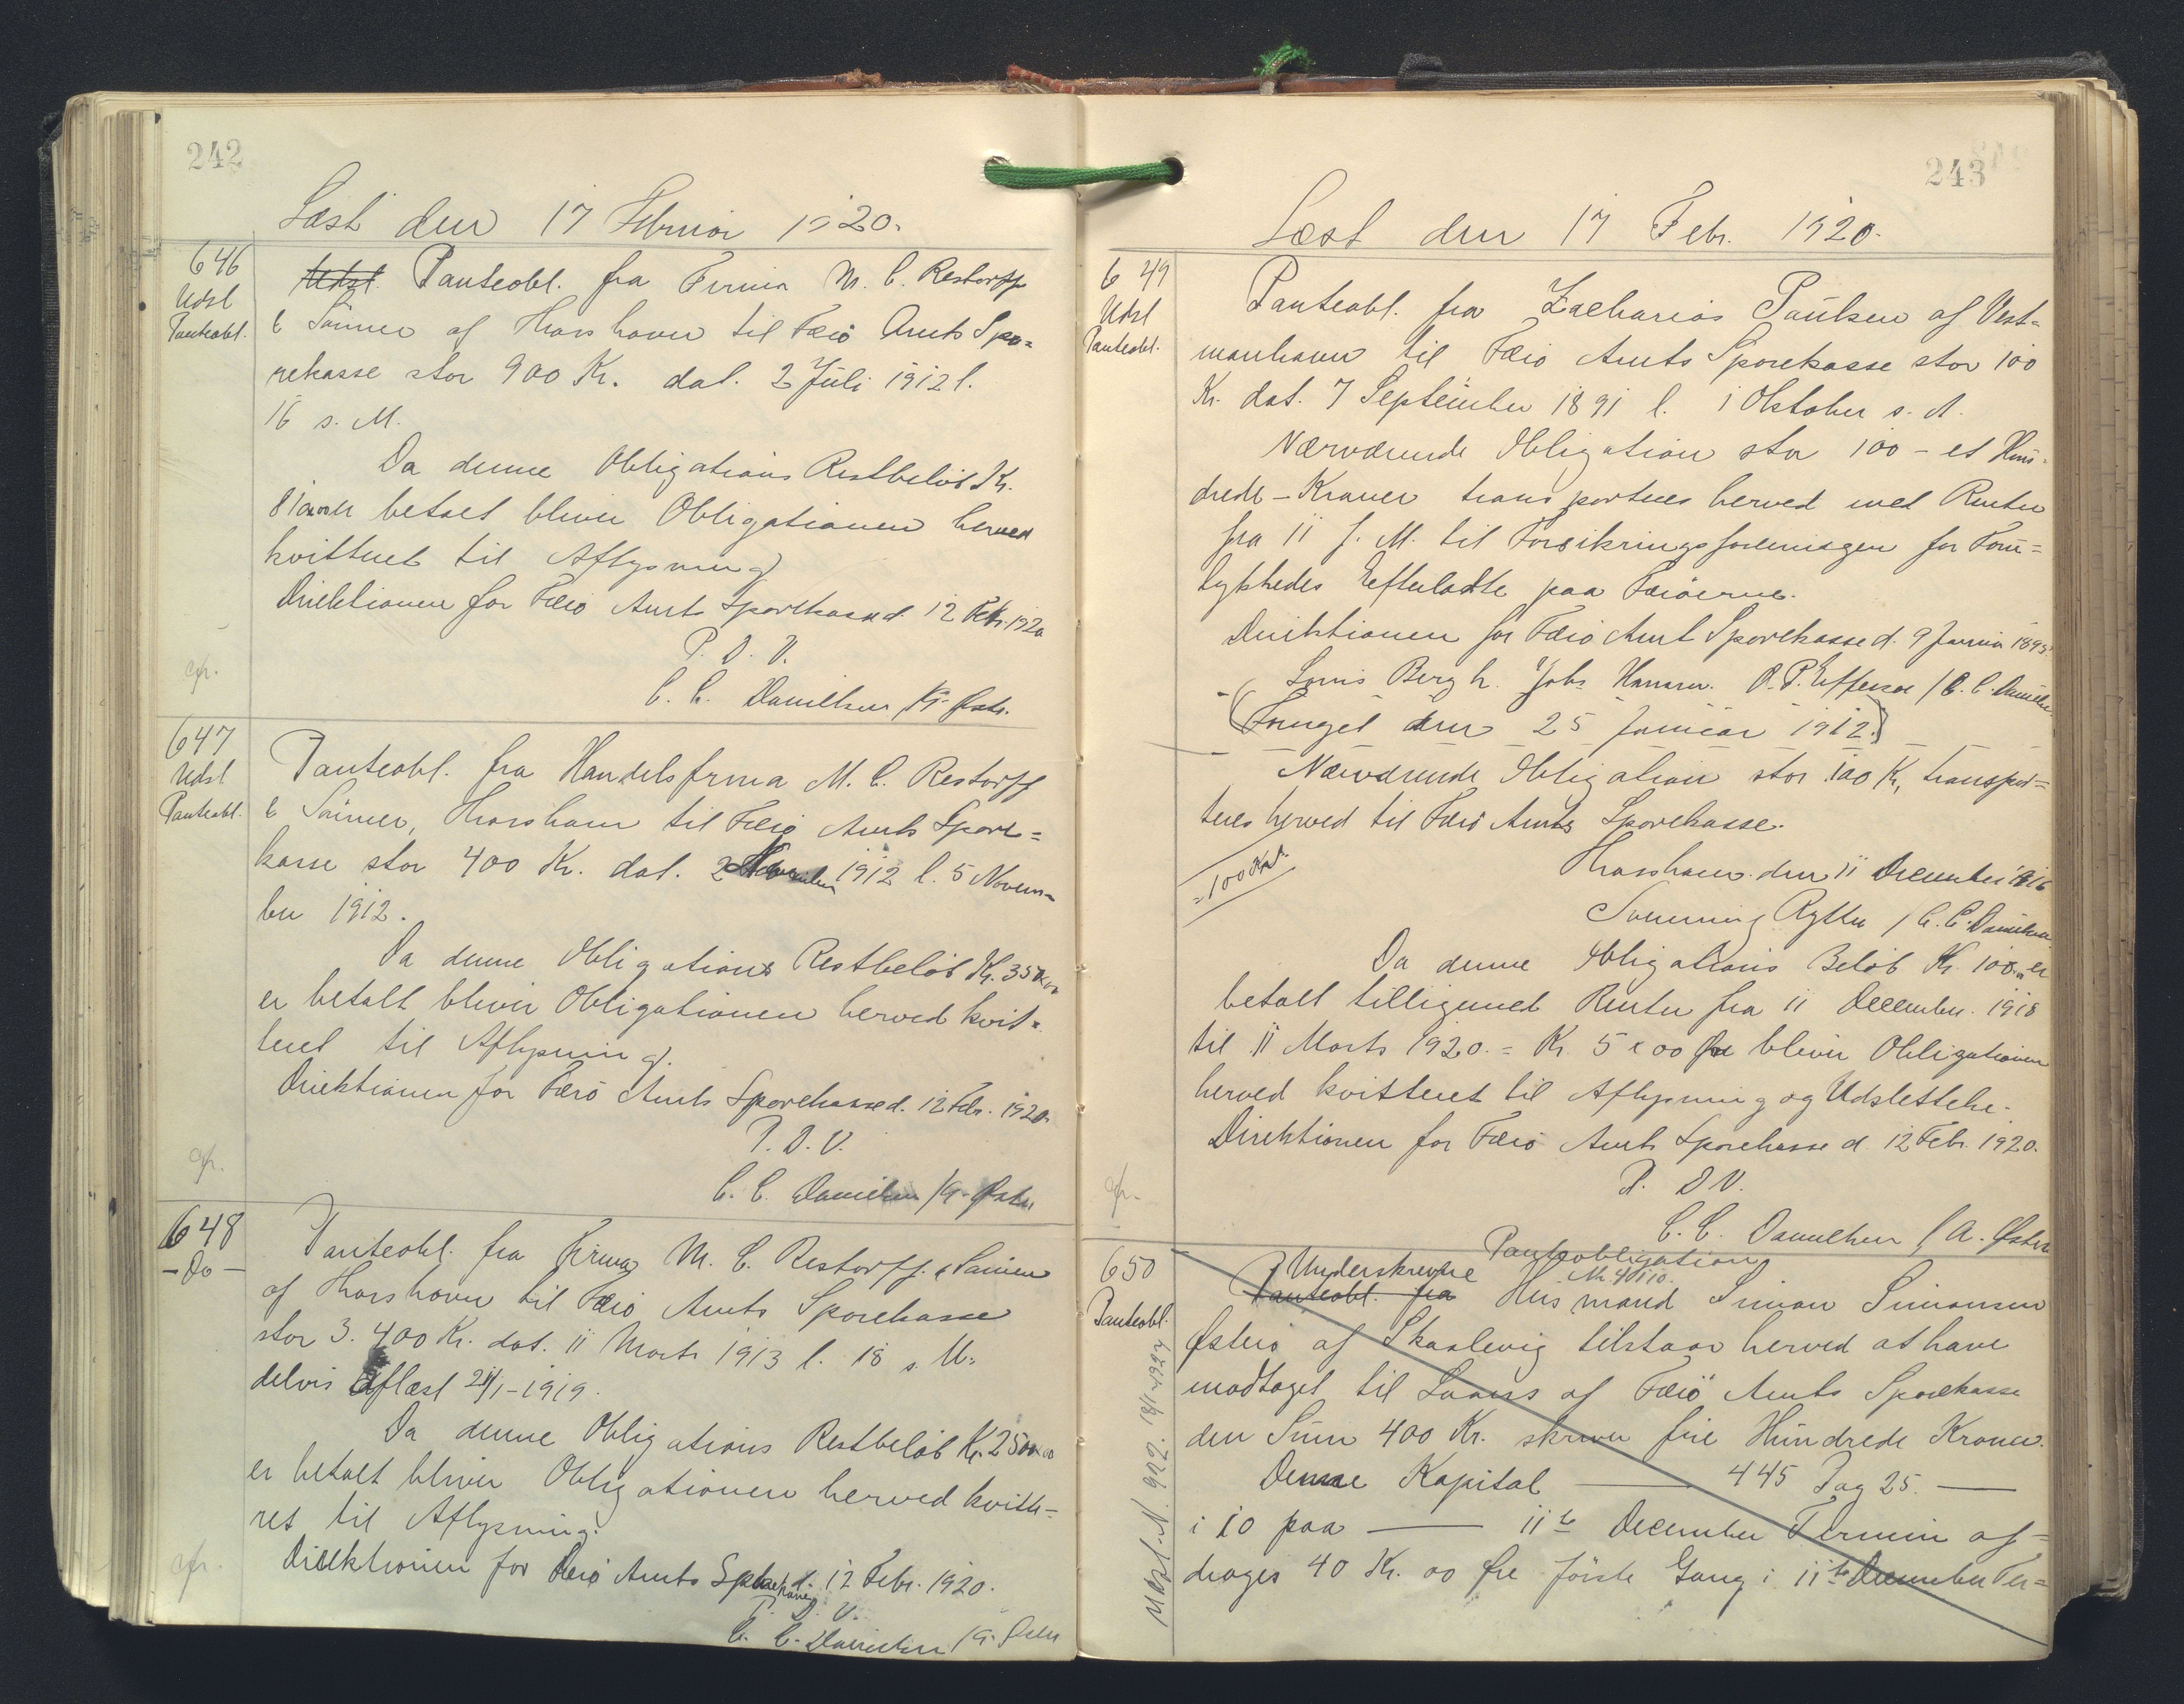 242
Læst den 17 Februar 1920.
646
Udsl
Panteobl.
Udsl. Panteobl. fra Firma M. C. Restorff
& Sönner af Thorshavn til Færö Amts Spa=
rekasse stor 900 Kr. dat. 2 Juli 1912 l.
16 s. M.
Da denne Obligations Restbelöb Kr.
810 er betalt bliver Obligationen herved
kvitteret til Aflysning
Direktionen for Færö Amts Sparekasse d. 12 Febr. 1920
P. D. V.
C. C. Danielsen /A. Öster.
cfr.
647
Udsl
Panteobl.
Panteobl. fra Handelsfirma M. C. Restorff
& Sönner, Thorshavn til Færö Amts Spare=
kasse stor 400 Kr. dat. 2 November 1912 l. 5 Novem=
ber 1912.
Da denne Obligations Restbelöb Kr. 350x00
er betalt bliver Obligationen herved kvit=
teret til Aflysning.
Direktionen for Færö Amts Sparekasse d. 12 Febr. 1920.
P. D. V.
C. C. Danielsen /A. Öster
cfr.
648
- Do -
Panteobl. fra Firma M. C. Restorff & Sönner
af Thorshavn til Færö Amts Sparekasse
stor 3.400 Kr. dat. 11 Marts 1913 l. 18 s. M.
delvis aflæst 21/1-1919.
Da denne Obligations Restbelöb Kr. 2500x00
er betalt bliver Obligationen herved kvitte=
ret til Aflysning.
Direktionen for Færö Amts Sparekasse d. 12 Febr. 1920.
P. D. V.
C. C. Danielsen /A. Öster
cfr.
243
Læst den 17 Febr. 1920.
649
Udsl
Panteobl.
Panteobl. fra Zacharias Paulsen af Vest=
manhavn til Færö Amts Sparekasse stor 100
Kr. dat. 7 September 1891 l. 1 Oktober s. A.
Nærværende Obligation stor 100 - et Hun=
drede - Kroner transporteres herved med Renter
fra 11 f. M. til Forsikringsforeningen for Forü=
lykkedes Efterladte paa Færöerne.
Direktionen for Færö Amt Sparekasse d. 9 Januar 1895.
Louis Bergh. Johs Hansen. O. P. Effersöe / C. C. Danielsen
(Fornyet den 25 Januar 1912.)
Nærværende Obligation stor 100 Kr, transpor=
teres herved til Færö Amts Sparekasse.
= 100 Kr
Thorshavn den 11 December 1916
Svenning Rytter / C. C. Danielsen
Da denne Obligations Belöb Kr. 100 er
betalt tilligemed Renter fra 11 December 1918
til 11 Marts 1920 = Kr. 5 x 00 Öre bliver Obligationen
herved kvitteret til Aflysning og Udslettelse.
Direktionen for Færö Amts Sparekasse d 12 Febr. 1920.
P. D V.
C. C. Danielsen / A. Öster
cfr.
650
Panteobl.
Panteobligation
Underskrevne
Panteobl. fra Husmand Simon Simonsen
Österö af Skaalevig tilstaar herved at have
modtaget til Laans af Færö Amts Sparekasse
den Sum 400 Kr. skriver fire Hundrede Kroner.
Denne Kapital — 445 Pag 25. —
i 10 paa — 11te December Termin af=
drages 40 Kr. 00 Öre förste Gang i 11te December Ter=